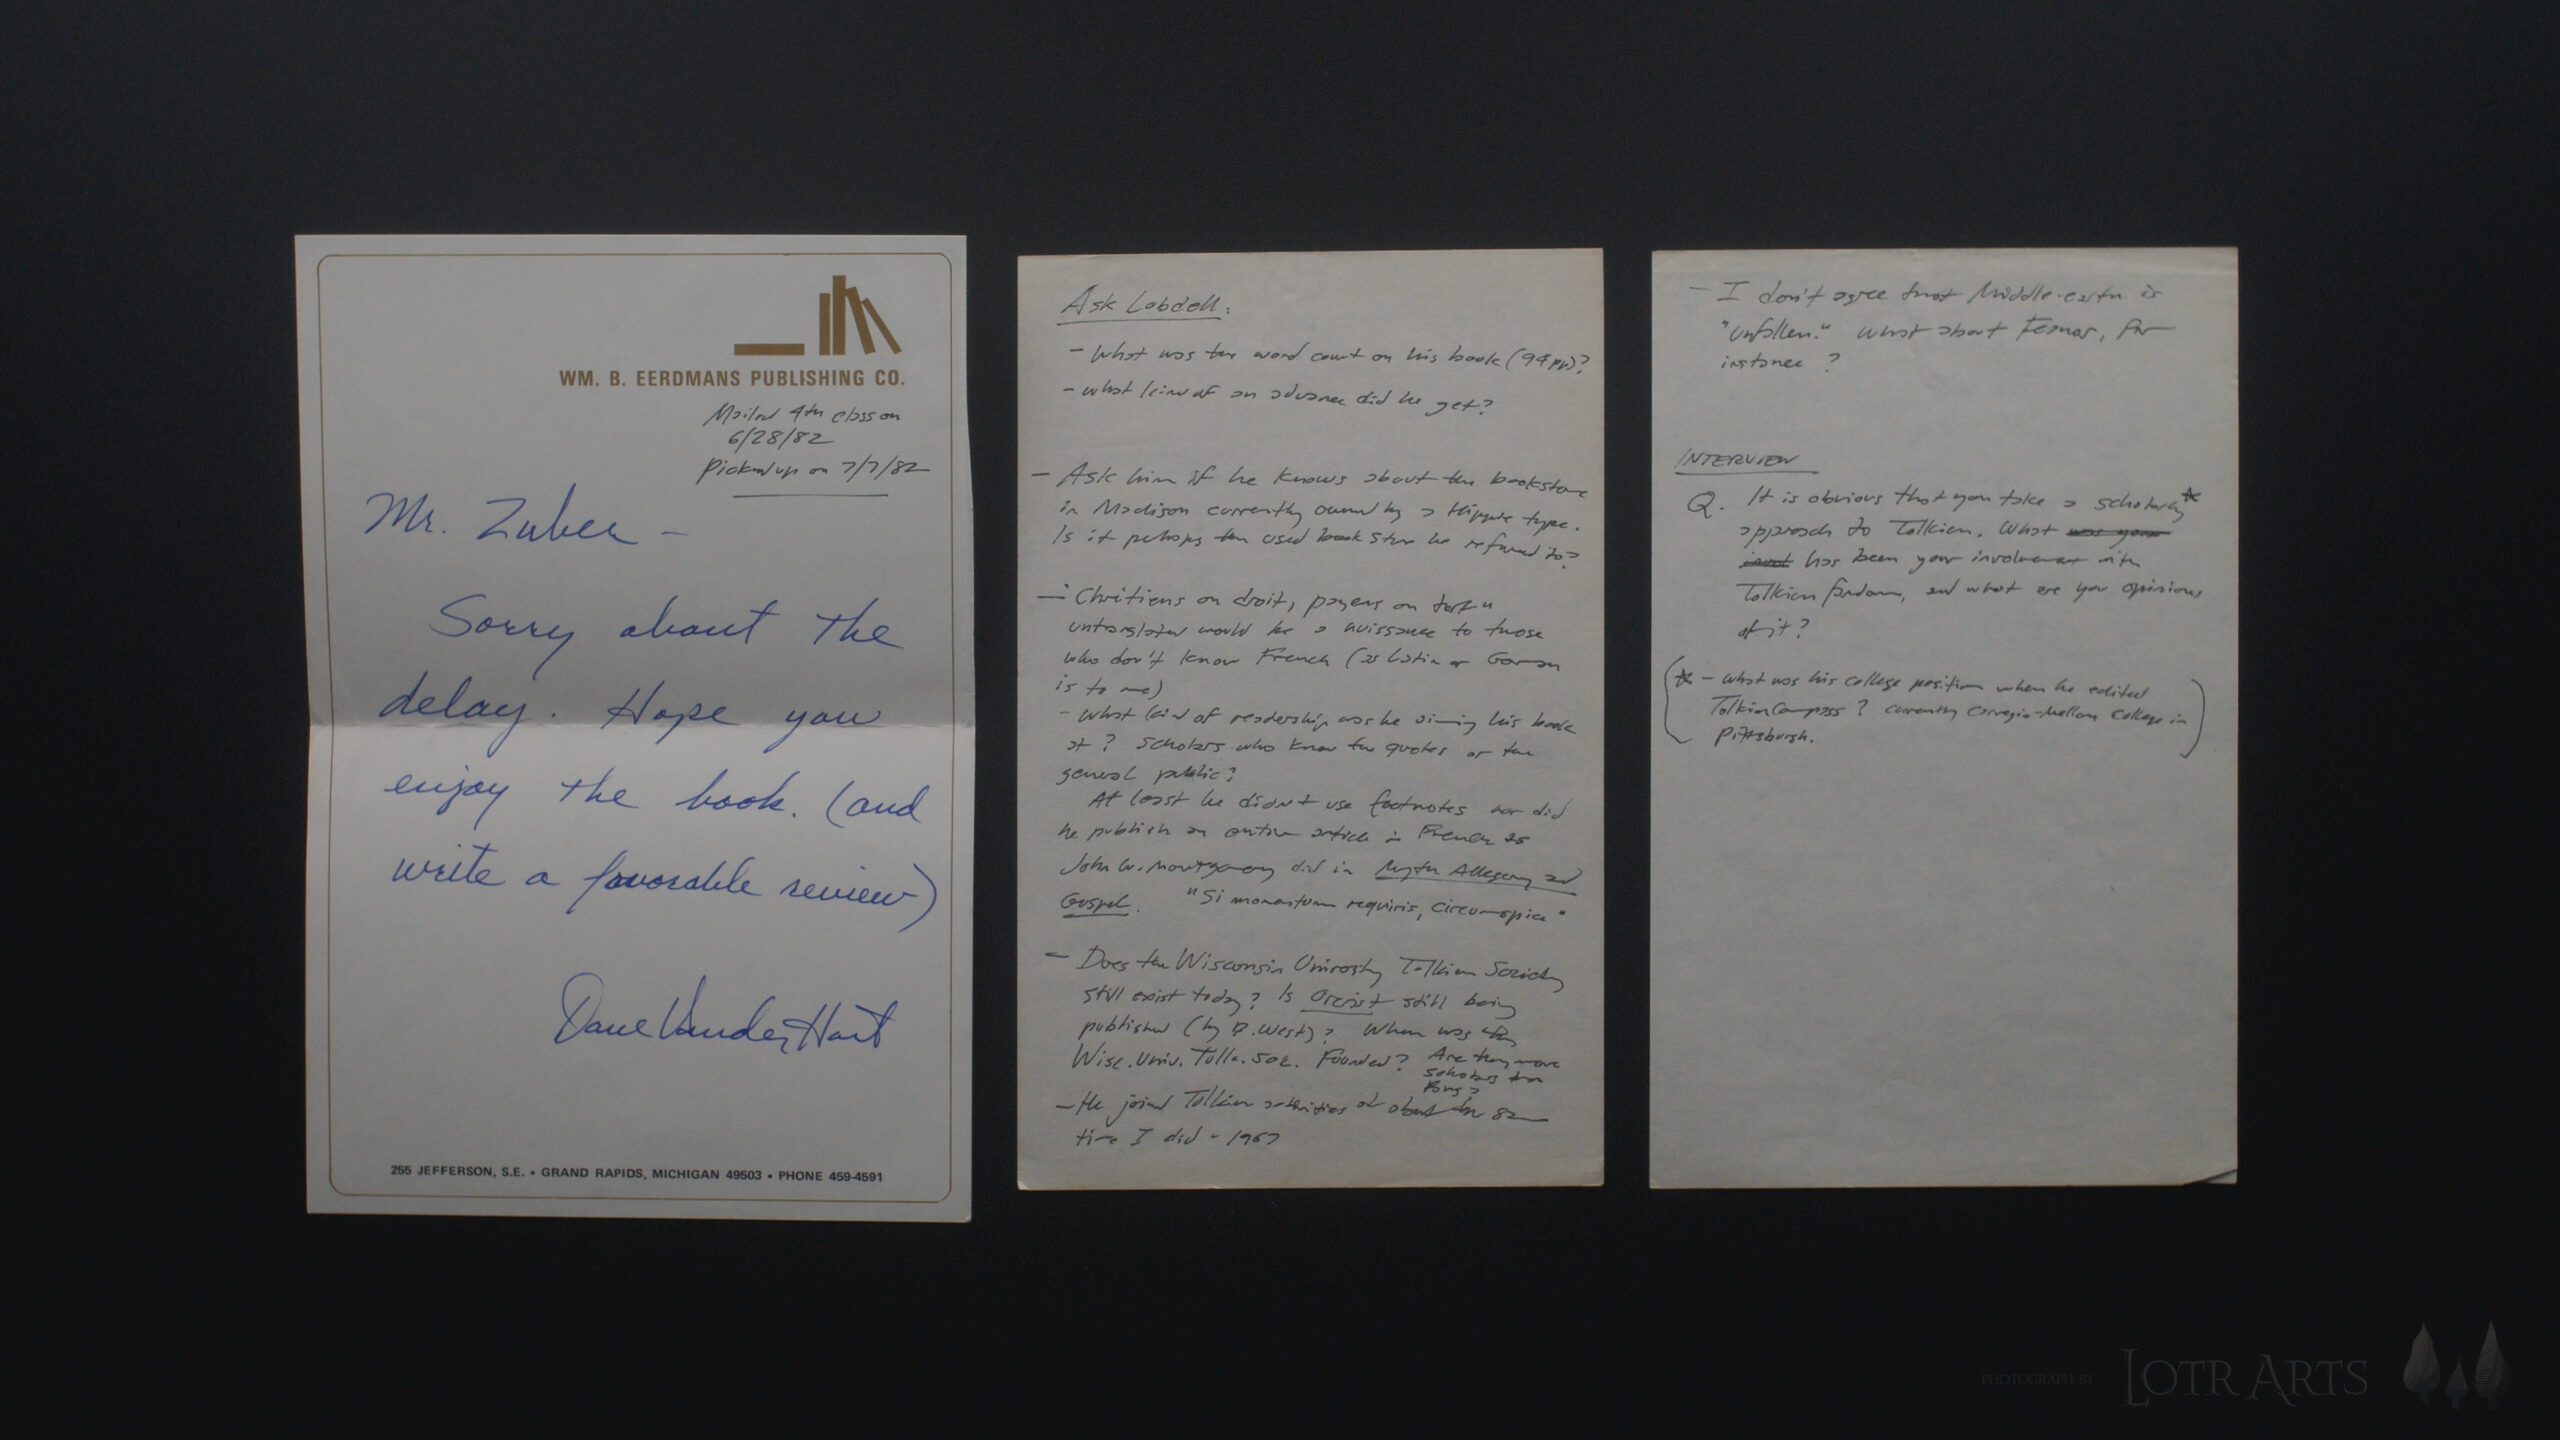 WM. B. EERDMANS PUBLISHING CO.
Mailed 4th class on
6/28/82
Picked up on 7/7/82
Mr. Zuber –
Sorry about the
delay. Hope you
enjoy the book. (and
write a favorable review)
Dave VanderHart
255 JEFFERSON, S.E. • GRAND RAPIDS, MICHIGAN 49503 • PHONE 459-4591
Ask Lobdell:
– What was the word count on his book (94 pp)?
– what kind of an advance did he get?
– Ask him if he knows about the bookstore
in Madison currently owned by a Hippie type.
Is it perhaps the used book store he referred to?
– "Chrétiens on droit, payens on tort"
untranslated would be a nuissance to those
who don't know French (as Latin or German
is to me)
– What kind of readership was he aiming his book
at? Scholars who know the quotes or the
general public?
At least he didn't use footnotes nor did
he publish an entire article in French as
John W. Montgomery did in Myth Allegory and
Gospel. "Si monumentum requiris, circumspice"
– Does the Wisconsin University Tolkien Society
still exist today? Is Orcrist still being
published (by R. West)? When was the
Wisc. Univ. Tolk. Soc. Founded? Are they more
scholars than
fans?
– He joined Tolkien activities at about the
time I did – 1967
– I don't agree that Middle-earth is
"unfallen." What about Feanor, for
instance?
INTERVIEW
Q. It is obvious that you take a scholarly*
approach to Tolkien. What was your
invol has been your involvement with
Tolkien fandom, and what are your opinions
of it?
(* – what was his college position when he edited
Tolkien Compass? currently Carnegie-Mellon College in
Pittsburgh.)
PHOTOGRAPH BY LOTR ARTS